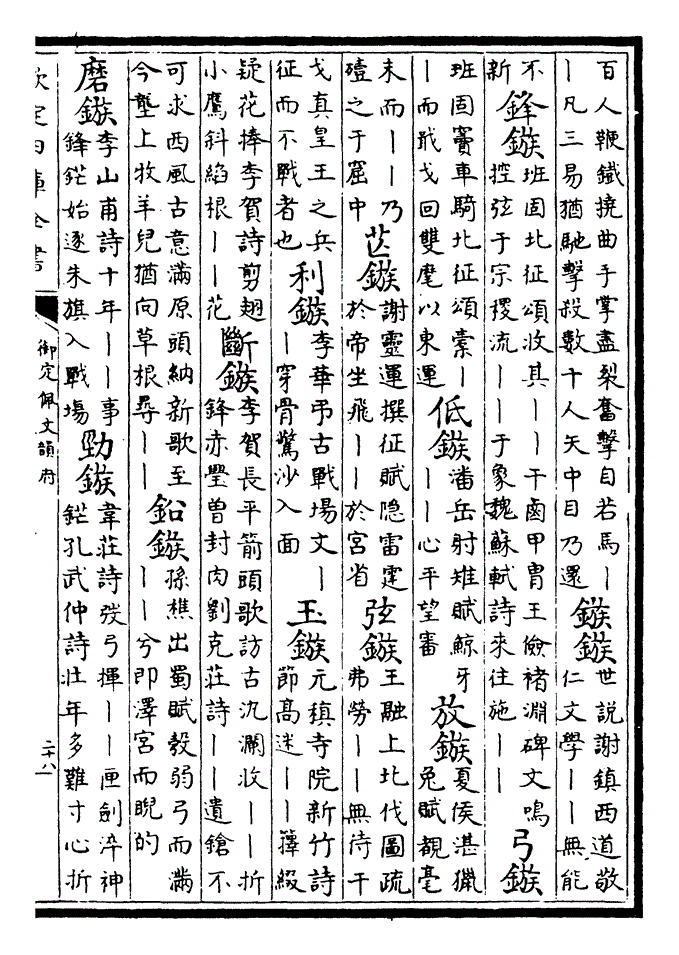 百人鞭鐵撓曲手掌盡裂奮擊自若馬｜
｜凡三易猶馳擊殺數十人矢中目乃還
鏃鏃
世説謝鎮西道敬
仁文學｜｜無能
不
新
鋒鏃
班固北征頌收其｜｜干鹵甲冑王儉褚淵碑文鳴
控弦于宗稷流｜｜于象魏蘇軾詩來往施｜｜
弓鏃
班固竇車騎北征頌橐｜
｜而戢戈回雙麾以東運
低鏃
潘岳射雉賦鯨牙
｜｜心平望審
放鏃
夏侯湛獵
兔賦觀毫
末而｜｜乃
殪之于窟中
鏃
謝靈運撰征賦隱雷霆
於帝坐飛｜｜於宮省
弦鏃
王融上北伐圖疏
弗勞｜｜無待干
戈真皇王之兵
征而不戰者也
利鏃
李華弔古戰場文｜
｜穿骨驚沙入面
玉鏃
元稹寺院新竹詩
節高迷｜｜籜綴
疑花捧李賀詩剪翅
小鷹斜縚根｜｜花
斷鏃
李賀長平箭頭歌訪古汍瀾收｜｜折
鋒赤璺曾封肉劉克莊詩｜｜遺鎗不
可求西風古意滿原頭納新歌至
今壟上牧羊兒猶向草根尋｜｜
鉛鏃
孫樵出蜀賦彀弱弓而滿
｜｜兮即澤宮而睨的
磨鏃
李山甫詩十年｜｜事
鋒鋩始逐朱旗入戰場
勁鏃
韋莊詩弢弓揮｜｜匣劍淬神
鋩孔武仲詩壯年多難寸心折
欽定四庫全書
御定佩文韻府
二十八